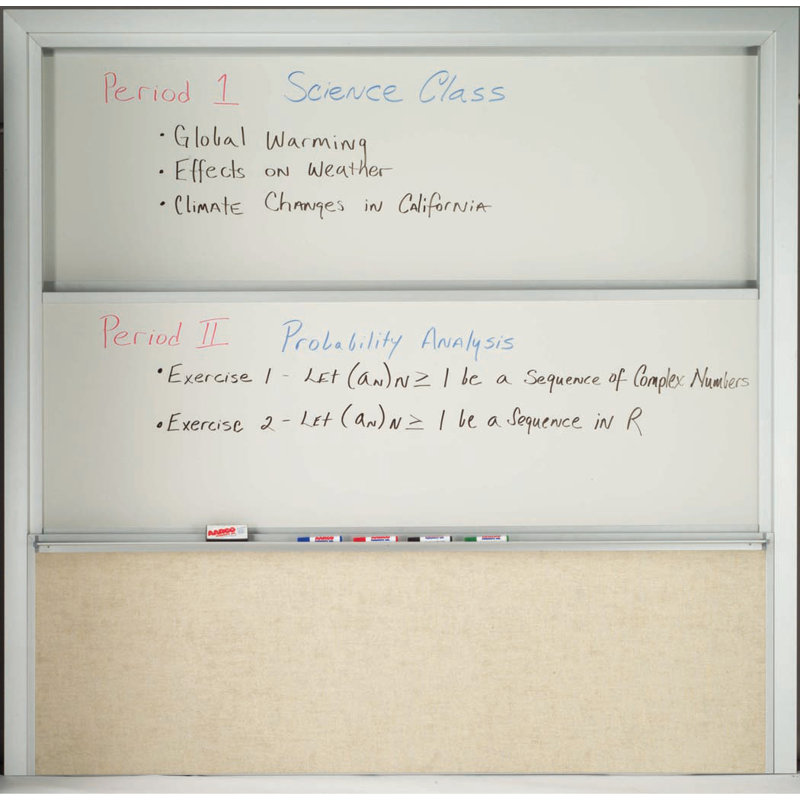 Period 1 Science Class
• Global Warming
• Effects on Weather
• Climate Changes in California
Period II Probability Analysis
• Exercise 1 - Let (aN)N ≥ 1 be a Sequence of Complex Numbers
• Exercise 2 - Let (aN)N ≥ 1 be a Sequence in R
AARCO